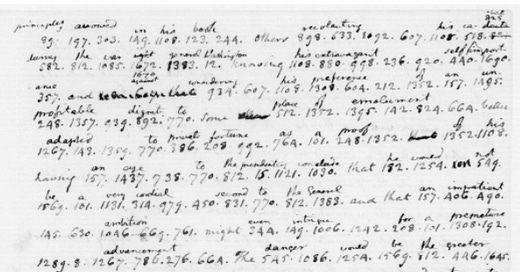 principles avowed in his book recolecting his ca
89. 197. 303. 149. 1108. 123. 244. others 898. 633. 1092. 607. 1108. 518.
during the war general Washington his extravagant self import
582. 812. 1085. 1672. 1383. 12. knowing 1108. 880. 998. 236. 920. 440. 1690.
ance considering his preference of an un
357. and 934. 607. 1108. 1308. 604. 212. 1352. 157. 1495.
profitable dignity to place of emolument
248. 1357. 939. 892. 770. some 512. 1352. 1395. 142. 824. 664. better
adapted to private fortune as a proof of his
1267. 143. 1359. 770. 386. 208. 992. 764. 101. 248. 1352. 1352. 1108.
having an eye to the presidency conclude
157. 1437. 738. 770. 812. 15. 1121. 1030. that 182. 1254. 549.
be a very cordial second to the General an impatient
1569. 101. 1131. 314. 979. 450. 831. 770. 812. 1383. and that 157. 406. 490.
ambition even intrigue for a premature
145. 630. 1046. 669. 761. might 344. 149. 1006. 1242. 208. 101. 1308. 192.
advancement danger would be the greater
1289. 8. 1267. 786. 276. 664. The 545. 1086. 1254. 1569. 812. 446. 1645.